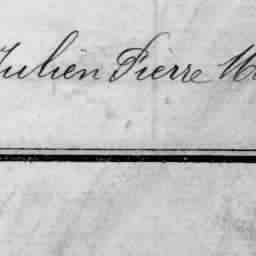 Julien Pierre